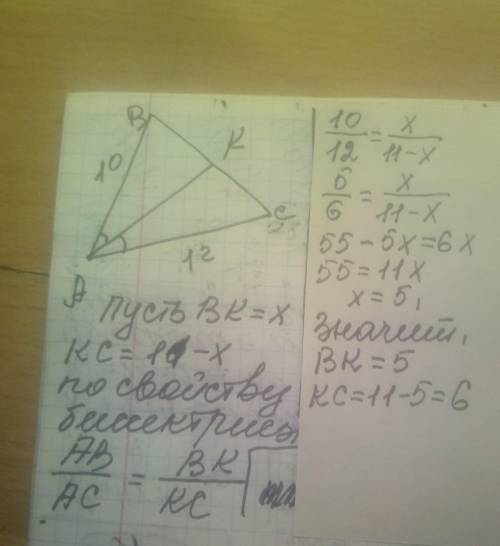 B
K
10
C
12
A
Пусть BK=x
KC=11-x
по свойству
биссектрисы
AB/AC = BK/KC
10/12 = x/11-x
5/6 = x/11-x
55-5x=6x
55=11x
x=5,
Значит,
BK=5
KC=11-5=6